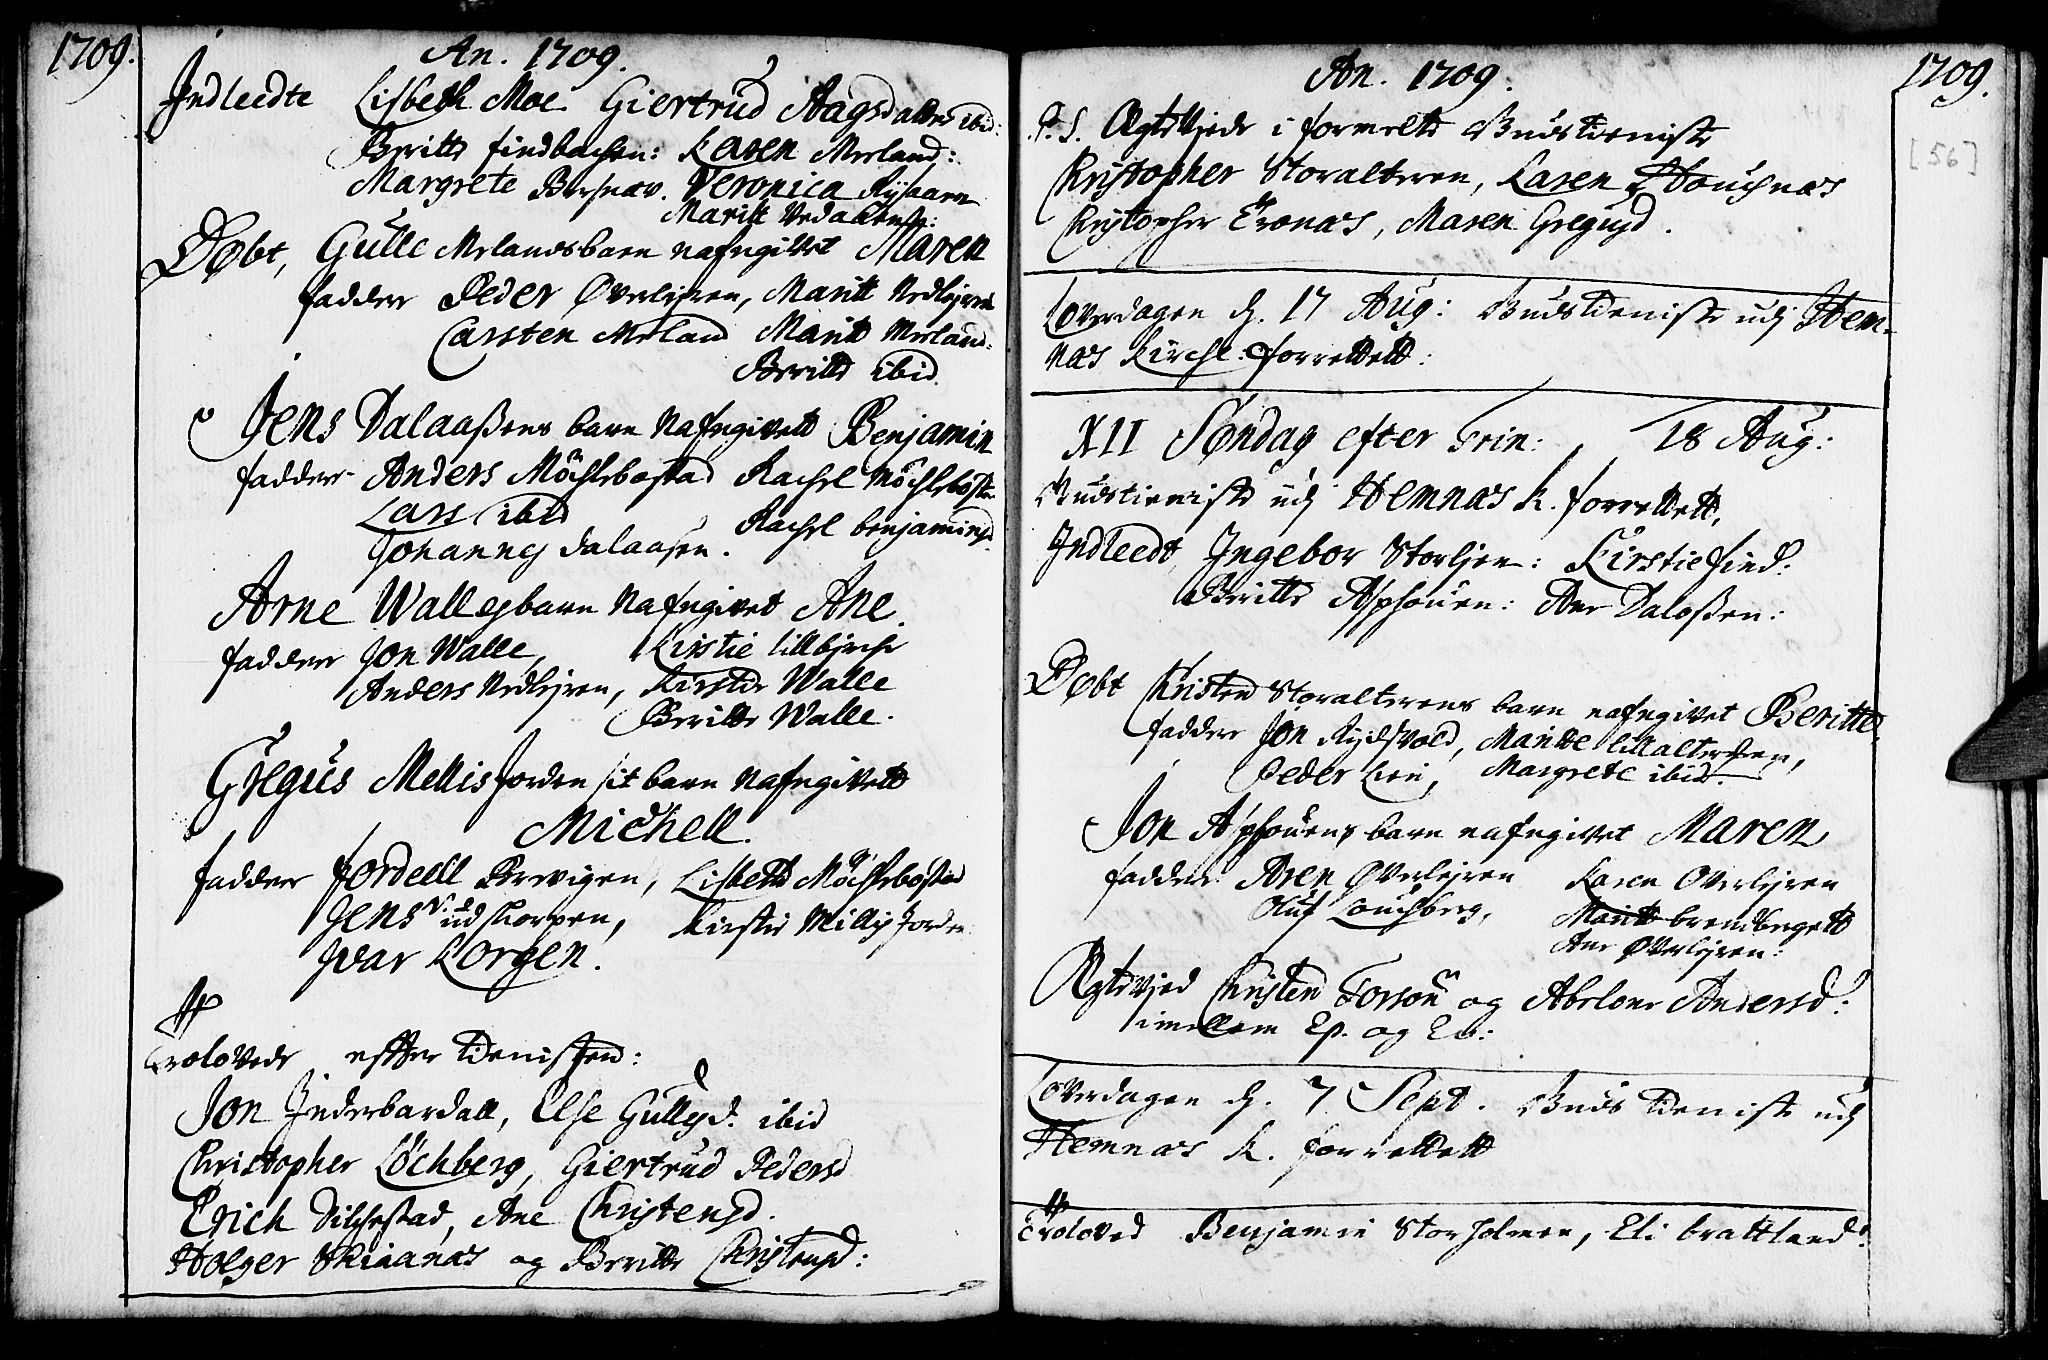 1709.
An. 1709.
Indleedte Lisbeth Moe. Giertrud Aagsdatter ibid:
Beritte findbachen: Karen Mrland:
Margrete Veronica
Maritt
Døbt, Gulle Mrlandsbarn nafngivet Maren
fadder Peder Øverlejren, Maritt Nedlejren
Carsten Mrland Maritt Mrland:
Beritte ibid
Jens Dalaaßens barn Nafngivett Benjamin
fadder Anders Möchlebostad Rachel Möchlebosta
Lars ibid Rachel benjaminsd.
Johannes dalaasen.
Arne Walles barn Nafngivet Ane.
fadder Jon Walle, Kirstie lillbjerche
Anders Nedlejren, Kirstie Walle
Beritte Walle.
Gregus Mellisfjorden sit barn Nafngivett
Michell.
fadder Jordell Brevigen, Lisbeth Möchlebostad
Jens udskorpen, Kirstie Millisjorden
Ivar Korgen.
Trolovede effter tienisten:
Jon Inderbardall, Else Gullesd. ibid
Christopher Löchberg, Giertrud Pedersd
Erich Dilchestad, Ane Christensd.
Holger Skiaanæs og Beritte Christensd:
An. 1709.
1709.
[56]
P.S. Ægteviede i formeldte Gudstieniste
Christopher Storalteren, Karen
Christopher Tronæs, Maren Gregusd.
Løverdagen d. 17 Aug: Gudstieniste udj Hem-
næs Kirche forrettett:
XII Søndag efter Trin: 18 Aug:
Gudstieniste udj Hemnæs K. forrettett,
Indleedt, Ingebor Storlien: Kirstie find:
Beritte Asphouen: Ane Dalosßen:
Døbt Christen Storalterens barn nafngivet Beritte
fadder Jon Rydsvold, Maritte lillalteren,
Peder Lien, Margrete ibid.
Jon Aspouens barn nafngivet Maren
fadder Aren Øverlejren Karen Overlejren
Oluf Louchberg, Maritt brendbergett
Ane Øverlejren:
Ægteviede Christen Torsøn og Abelone Andersd:
imellem Ep. og Ev:
Løverdagen d. 7 Sept. Gudstieniste udj
Hemnæs K. forrettett
Troloved Benjamin Storholmen, Eli brattland: